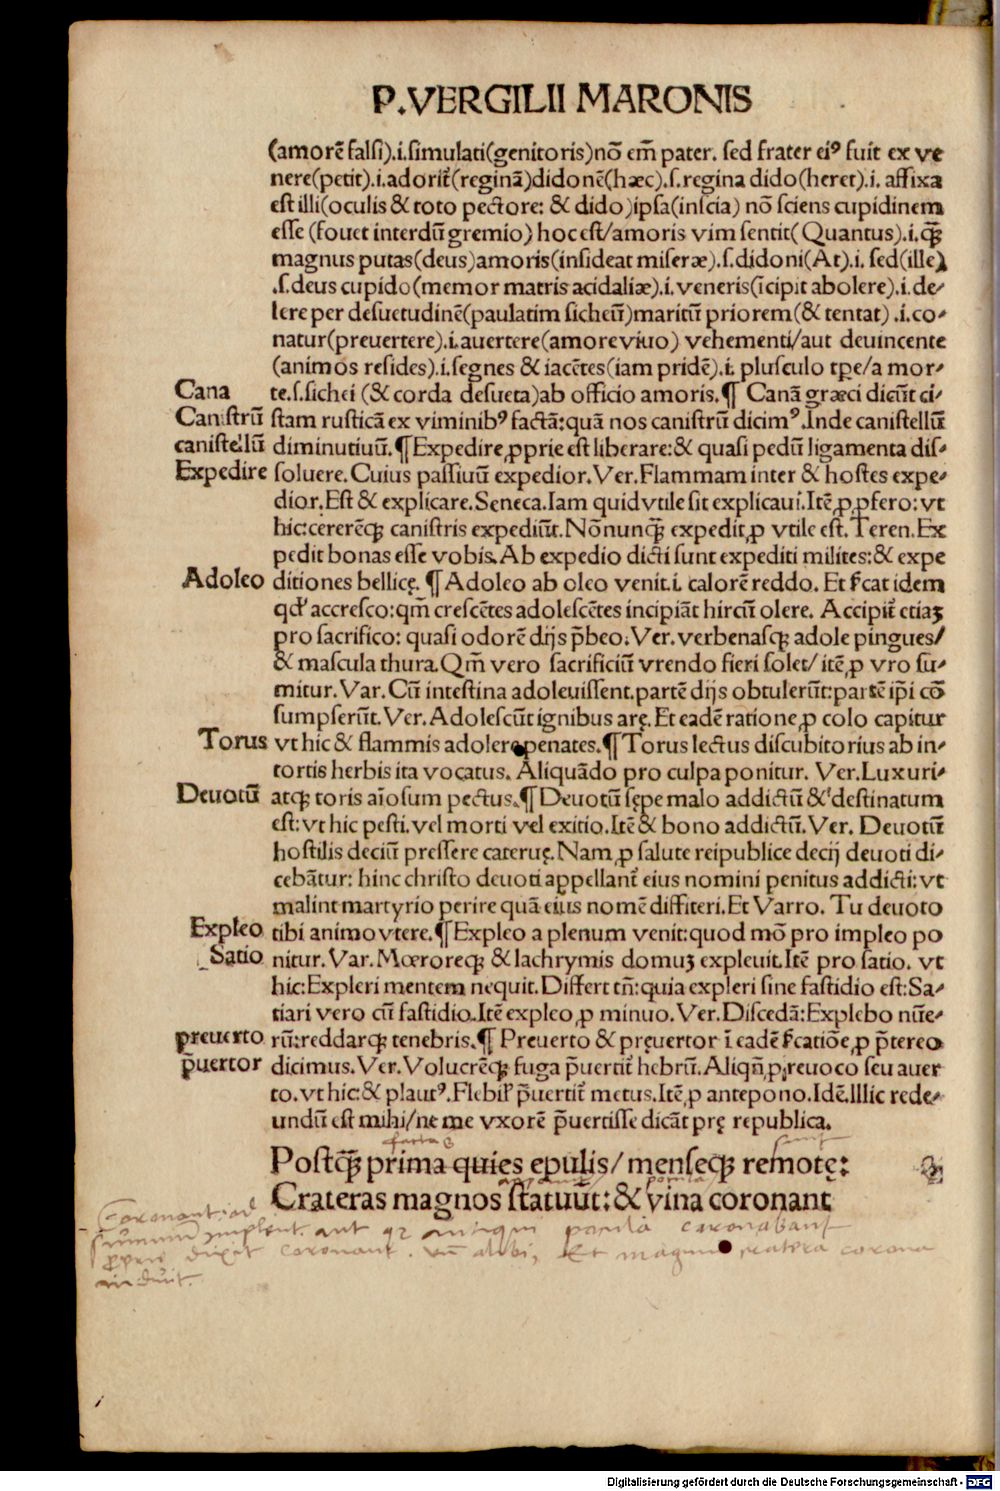 P.VERGILII MARONIS
(amorē falsi).i.simulati(genitoris)nō em̄ pater. sed frater eiꝰ fuit ex ve
nere(petit).i.adorit̄(reginā)didonē(hæc).s.regina dido(heret).i. affixa
est illi(oculis & toto pectore: & dido)ipsa(inscia) nō sciens cupidinem
esse (fouet interdū gremio) hoc est/amoris vim sentit( Quantus).i.qȝ̄
magnus putas(deus)amoris(insideat miseræ).s.didoni(At).i. sed(ille)
.s.deus cupido(memor matris acidaliæ).i.veneris(īcipit abolere).i.de⸗
lere per desuetudinē(paulatim sicheū)maritū priorem(& tentat) .i.co⸗
natur(preuertere).i.auertere(amore viuo) vehementi/aut deuincente
(animos resides).i.segnes & iacētes(iam pridē).i. plusculo tꝑe/a mor⸗
Cana te.s.sichei (& corda desueta)ab officio amoris.¶ Canā græci dicūt ci⸗
Canistrū stam rusticā ex viminibꝰ factā:quā nos canistrū dicimꝰ.Inde canistellū
canistellū diminutiuū.¶Expedire ꝓprie est liberare:& quasi pedū ligamenta dis⸗
Expedire soluere. Cuius passiuū expedior. Ver.Flammam inter & hostes expe⸗
dior.Est & explicare.Seneca.Iam quid vtile sit explicaui.Itē ꝓ ꝓfero: vt
hic:cererēqȝ canistris expediūt.Nōnunqȝ̄ expedit ꝓ vtile est. Teren.Ex
pedit bonas esse vobis.Ab expedio dicti sunt expediti milites:& expe
Adoleo ditiones bellicę. ¶ Adoleo ab oleo venit.i. calorē reddo. Et s̄cat idem
qđ accresco:qm̄ crescētes adolescētes incipiāt hircū olere. Accipit̄ etiaȝ
pro sacrifico: quasi odorē dijs p̄beo. Ver. verbenasqȝ adole pingues/
& mascula thura.Qm̄ vero sacrificiū vrendo fieri solet/ itē ꝓ vro su⸗
mitur. Var. Cū intestina adoleuissent.partē dijs obtulerūt:partē ip̄i cō
sumpserūt. Ver. Adolescūt ignibus arę. Et eadē ratione ꝓ colo capitur
Torus vt hic & flammis adolere penates.¶Torus lectus discubitorius ab in⸗
tortis herbis ita vocatus. Aliquādo pro culpa ponitur. Ver.Luxuri⸗
Deuotū atqȝ toris aīosum pectus.¶Deuotū sępe malo addictū & destinatum
est: vt hic pesti. vel morti vel exitio.Itē & bono addictū. Ver. Deuotū
hostilis deciū pressere cateruę. Nam ꝓ salute reipublice decij deuoti di⸗
cebātur: hinc christo deuoti appellant̄ eius nomini penitus addicti: vt
malint martyrio perire quā eius nomē diffiteri.Et Varro. Tu deuoto
Expleo tibi animo vtere.¶Expleo a plenum venit:quod mō pro impleo po
Satio nitur. Var. Mœroreqȝ & lachrymis domuȝ expleuit.Itē pro satio. vt
hic:Expleri mentem nequit. Differt tn̄:quia expleri sine fastidio est:Sa⸗
tiari vero cū fastidio.Itē expleo ꝓ minuo. Ver.Discedā:Explebo nūe⸗
preuerto rū:reddarqȝ tenebris.¶ Preuerto & pręuertor ī eadē s̄catiōe ꝓ p̄tereo
p̄uertor dicimus. Ver. Volucrēqȝ fuga p̄uertit̄ hebrū. Aliqn̄ ꝓ reuoco seu auer
to. vt hic:& plautꝰ. Flebil' p̄uertit̄ metus. Itē ꝓ antepono. Idē. Illic rede⸗
undū est mihi/ne me vxorē p̄uertisse dicāt prę republica.
facta
sunt
Postqȝ̄ prima quies epulis/ mensęqȝ remotę:
pocula
Crateras magnos statuūt: & vina coronant
Coronant: ad
summum implent. aut qȝ antiqui pocula coronabant
proprie dixit coronant. vn̄ alibi, Et magnū cratera corona
induit.
Digitalisierung gefördert durch die Deutsche Forschungsgemeinschaft - DFG